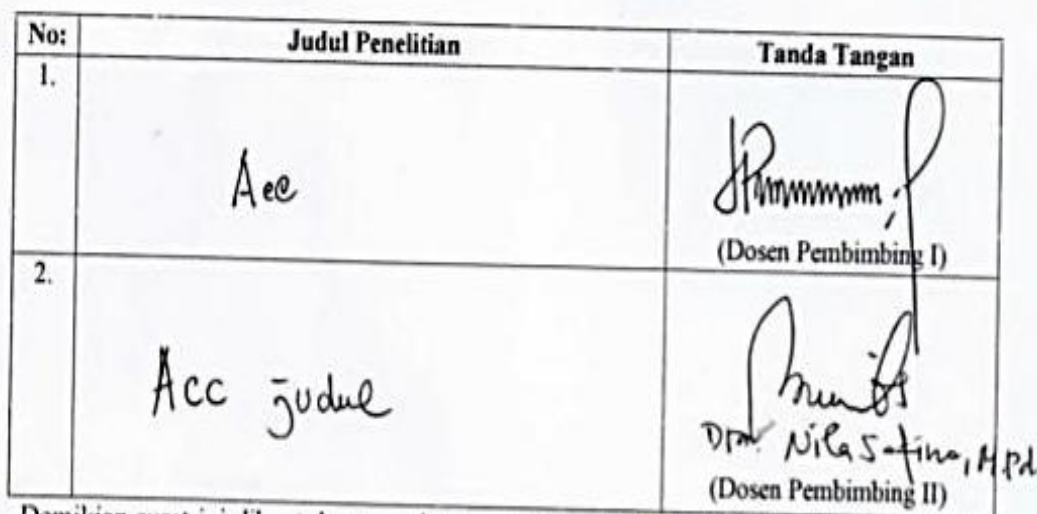 No: Judul Penelitian Tanda Tangan
1.
Acc
(Dosen Pembimbing I)
2.
Acc judul
Nila Safina, M.Pd
(Dosen Pembimbing II)
Demikian surat ini